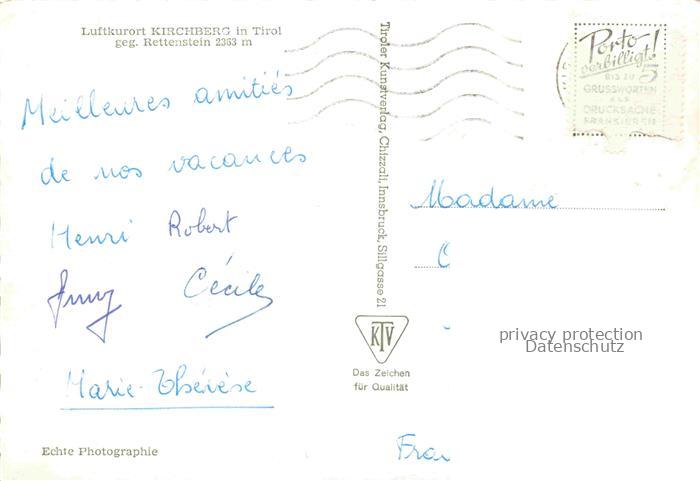 Luftkurort KIRCHBERG in Tirol
geg. Rettenstein 2363 m
Meilleures amitiés
de nos vacances
Henri Robert
Cécile
Marie-Thérèse
Echte Photographie
Tiroler Kunstverlag, Chizzali, Innsbruck, Sillgasse 21
KTV
Das Zeichen
für Qualität
Porto
verbilligt!
BIS ZU 5
GRUSSWORTEN
ALS
DRUCKSACHE
FRANKIEREN
Madame
C
privacy protection
Datenschutz
Fra